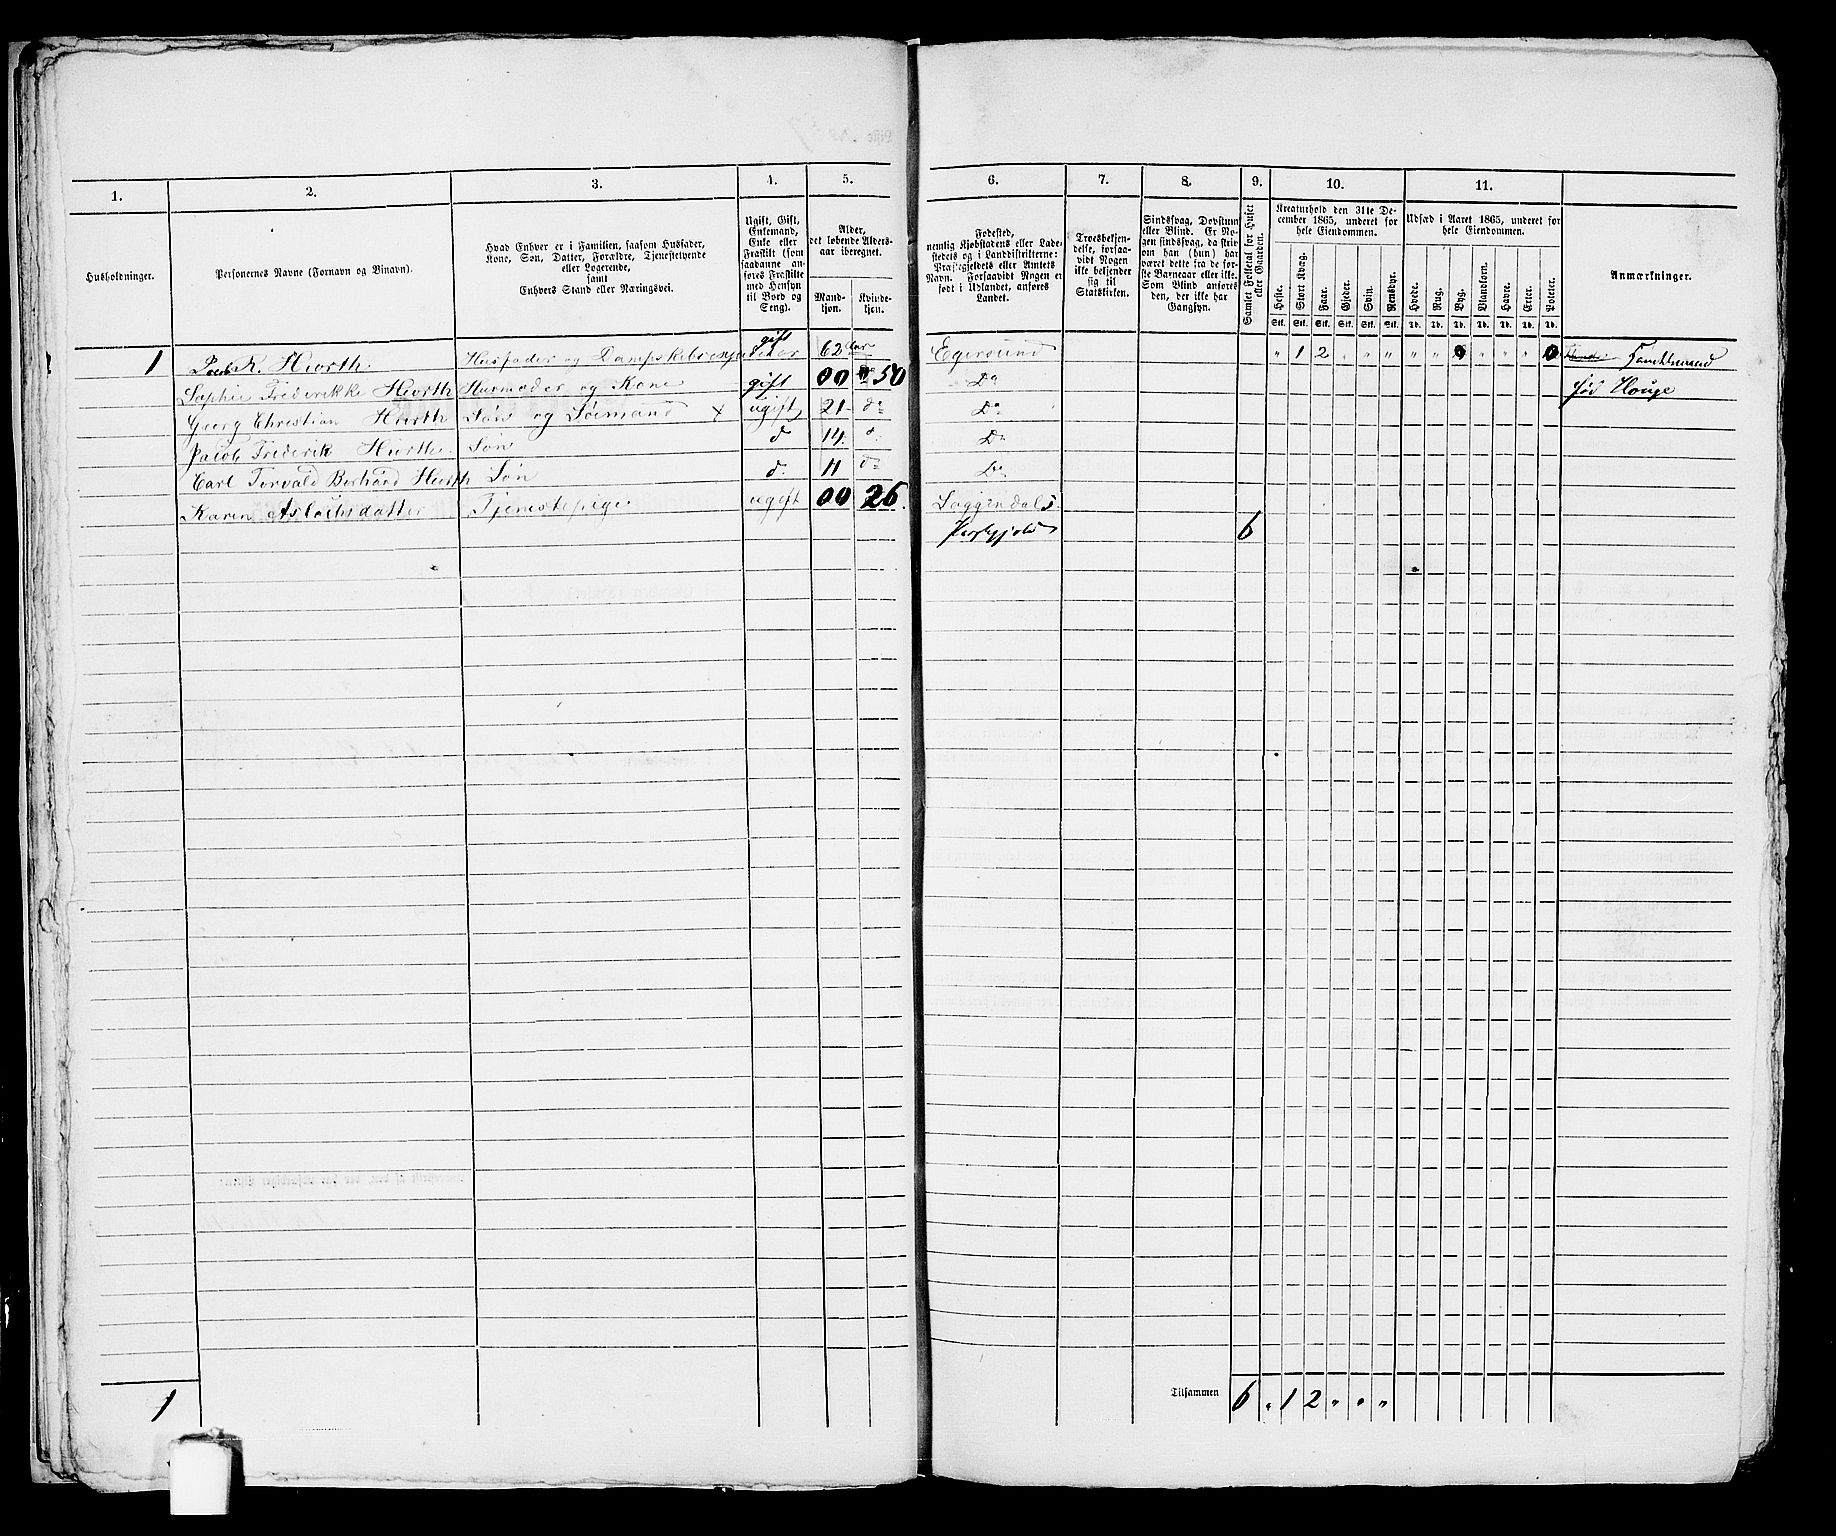 1.
2.
3.
4.
5.
Husholdninger.
Personernes Navne (Fornavn og Binavn).
Hvad Enhver er i Familien, saasom Husfader,
Kone, Søn, Datter, Forældre, Tjenestetyende
eller Logerende,
samt
Enhvers Stand eller Næringsvei.
Ugift, Gift,
Enkemand,
Enke eller
Fraskilt (som
saadanne an-
føres Fraskilte
med Hensyn
til Bord og
Seng).
Alder,
det løbende Alders-
aar iberegnet.
Mand-
kjøn.
Kvinde-
kjøn.
1 R. Hiorth Husfader og gift 62 Aar
Sophie Frederikke Hiorth Husmoder og Kone gift 00 50
Georg Christian Hiorth Søn og Sømand x ugift 21 do
Jacob Frederik Hiorth Søn d 14 d
Carl Torvald Berhard Hiorth Søn d. 11 do
Karen Aslaksdatter Tjenestepige ugift 00 26.
1
6.
7.
8.
9.
10.
11.
Fødested,
nemlig Kjøbstadens eller Lade-
stedets og i Landdistrikterne:
Præstegjeldets eller Amtets
Navn. Forsaavidt Nogen er
født i Udlandet, anføres
Landet.
Troesbekjen-
delse, forsaa-
vidt Nogen
ikke bekjender
sig til
Statskirken.
Sindssvag, Døvstum
eller Blind. Er No-
gen sindssvag, da skriv
om han (hun) har
været dette fra de før-
ste Barneaar eller ikke.
Som Blind anføres
den, der ikke har
Gangsyn.
Samlet Folketal for Huset
eller Gaarden.
Kreaturhold den 31te De-
cember 1865, underet for
hele Eiendommen.
Heste. Stort Kvæg. Faar. Gjeder. Svin. Rensdyr.
Stk. Stk. Stk. Stk. Stk. Stk.
Udsæd i Aaret 1865, underet for
hele Eiendommen.
Hvede. Rug. Byg. Blandkorn. Havre. Erter. Poteter.
Td. Td. Td. Td. Td. Td. Td.
Anmærkninger.
Egersund " 1 2 " " " " " 0 " " " 0
Do
Do
Do
Do
6
Tilsammen 6 " 1 2 " " "